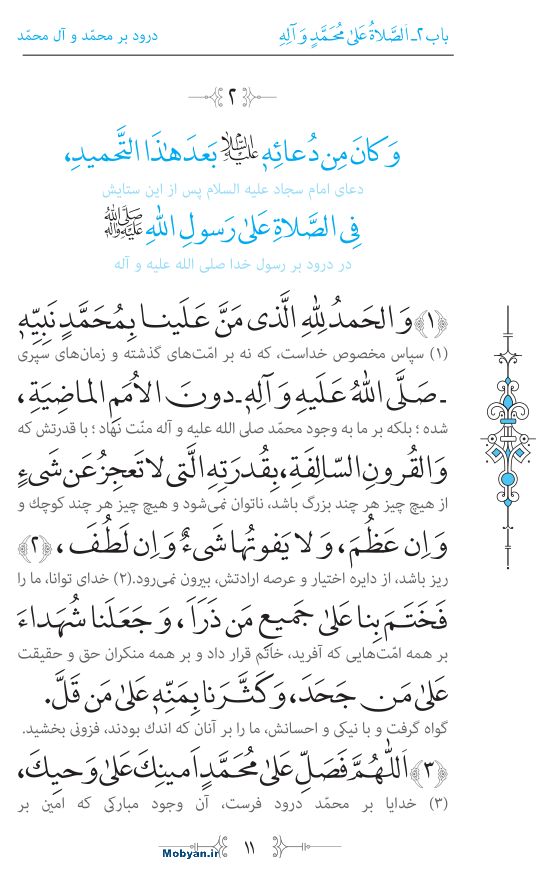 باب ۲ـ اَلصَّلاةُ عَلىٰ مُحَمَّدٍ وَ آلِهِ
درود بر محمّد و آل محمّد
۲
وَ كانَ مِن دُعائِهِ عَلَيْهِ السَّلام بَعدَ هٰذَا التَّحميدِ،
دعای امام سجاد علیه السلام پس از این ستایش
فِى الصَّلاةِ عَلىٰ رَسولِ اللهِ صَلَّى اللهُ عَلَيْهِ وَآلِهِ
در درود بر رسول خدا صلی الله علیه و آله
﴿۱﴾ وَ الحَمدُ لِلّٰهِ الَّذى مَنَّ عَلَينا بِمُحَمَّدٍ نَبِيِّهِ
(۱) سپاس مخصوص خداست، که نه بر امّت‌های گذشته و زمان‌های سپری
ـ صَلَّى اللهُ عَلَيهِ وَ آلِهِ ـ دونَ الاُمَمِ الماضِيَةِ،
شده ؛ بلکه بر ما به وجود محمّد صلی الله علیه و آله منّت نهاد ؛ با قدرتش که
وَ القُرونِ السّالِفَةِ، بِقُدرَتِهِ الَّتى لا تَعجِزُ عَن شَىءٍ
از هیچ چیز هر چند بزرگ باشد، ناتوان نمی‌شود و هیچ چیز هر چند کوچک و
وَ اِن عَظُمَ، وَ لا يَفوتُها شَىءٌ وَ اِن لَطُفَ، ﴿۲﴾
ریز باشد، از دایره اختیار و عرصه ارادتش، بیرون نمی‌رود.(۲) خدای توانا، ما را
فَخَتَمَ بِنا عَلىٰ جَميعِ مَن ذَرَاَ، وَ جَعَلَنا شُهَداءَ
بر همه امّت‌هایی که آفرید، خاتَم قرار داد و بر همه منکران حق و حقیقت
عَلىٰ مَن جَحَدَ، وَ كَثَّرَنا بِمَنِّهِ عَلىٰ مَن قَلَّ.
گواه گرفت و با نیکی و احسانش، ما را بر آنان که اندک بودند، فزونی بخشید.
﴿۳﴾ اَللّٰهُمَّ فَصَلِّ عَلىٰ مُحَمَّدٍ اَمينِكَ عَلىٰ وَحيِكَ،
(۳) خدایا بر محمّد درود فرست، آن وجود مبارکی که امین بر
۱۱
Mobyan.ir